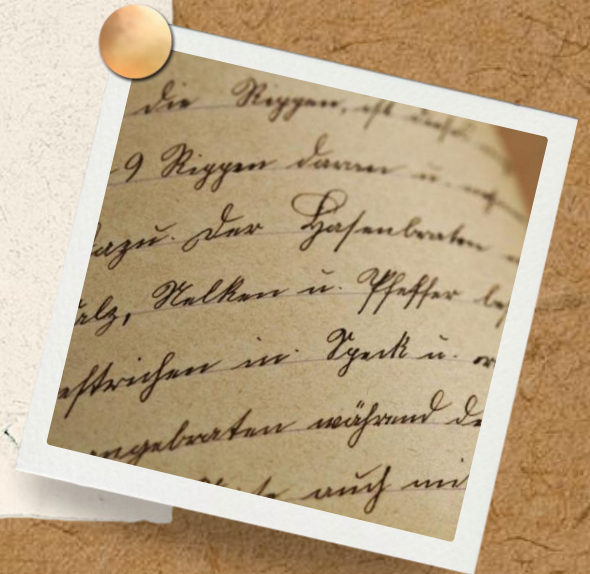 die Rippen, ist
9 Rippen daran u.
dazu. Der Hasenbraten
alz, Nelken u. Pfeffer be
estrichen in Speck u.
angebraten während de
auch mi